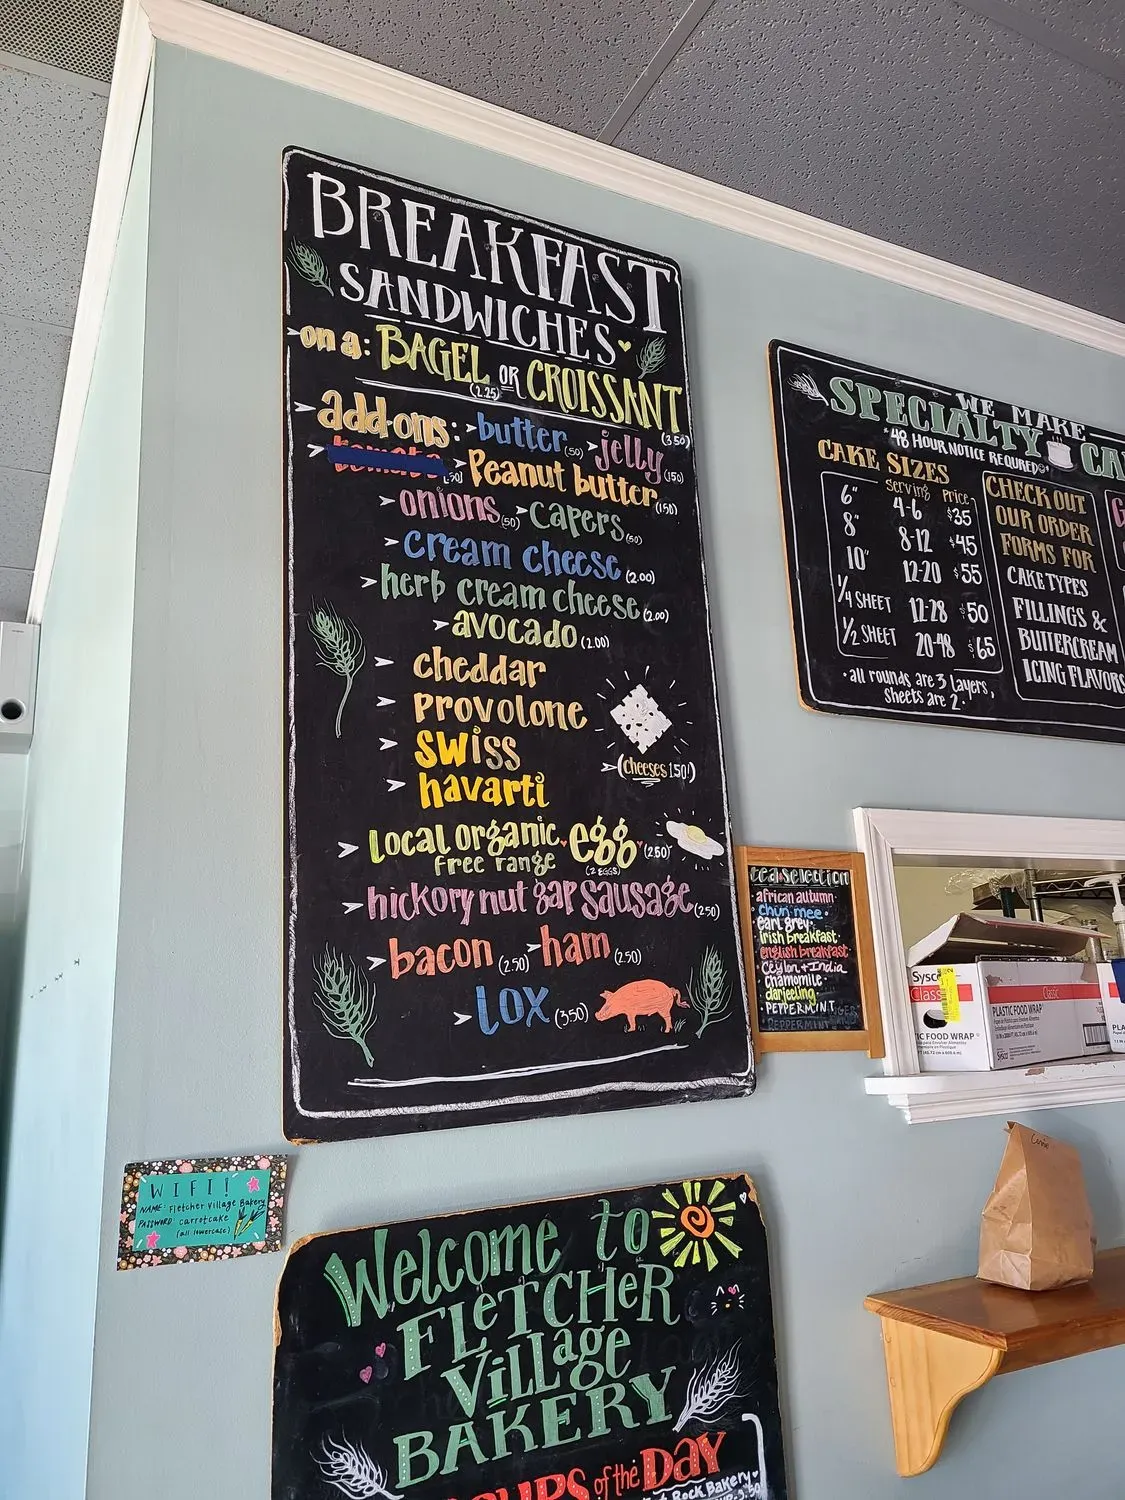 BREAKFAST
SANDWICHES
on a: BAGEL OR CROISSANT
(2.25)
(3.50)
add-ons: butter (.50) jelly (1.50)
Peanut butter (1.50)
onions (.50) capers (.50)
cream cheese (2.00)
herb cream cheese (2.00)
avocado (2.00)
cheddar
Provolone
swiss
(cheeses 1.50!)
havarti
Local organic egg (2.50)
free range (2 EGGS)
hickory nut gap sausage (2.50)
bacon (2.50) ham (2.50)
LOX (3.50)
WE MAKE
SPECIALTY
*48 HOUR NOTICE REQUIRED*
CAKE SIZES
Serving Price
6" 4-6 $35
8" 8-12 $45
10" 12-20 $55
1/4 SHEET 12-28 $50
1/2 SHEET 20-48 $65
•all rounds are 3 layers,
sheets are 2•
CHECK OUT
OUR ORDER
FORMS FOR
CAKE TYPES
FILLINGS &
BUTTERCREAM
ICING FLAVORS
tea selection
african autumn
chun mee
earl grey
irish breakfast
english breakfast
Ceylon + India
chamomile
darjeeling
PEPPERMINT
Sysco
Classic
PLASTIC FOOD WRAP
Classic
PLASTIC FOOD WRAP
WIFI!
NAME: Fletcher Village Bakery
PASSWORD: carrotcake
(all lowercase)
Welcome to
FLetCHeR
Village
BAKERY
of the Day
Rock Bakery